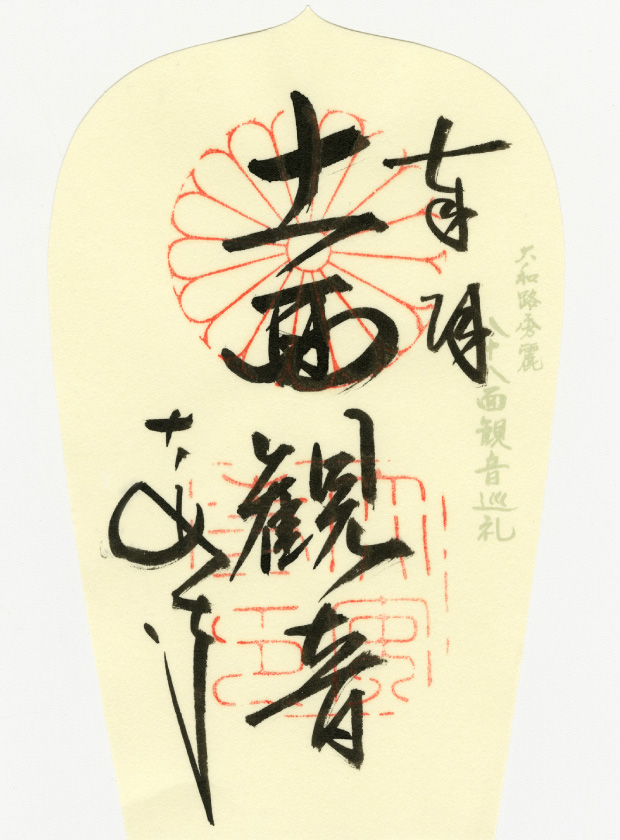 奉拝
大和路秀麗
八十八面観音巡礼
十一面觀音
大安寺